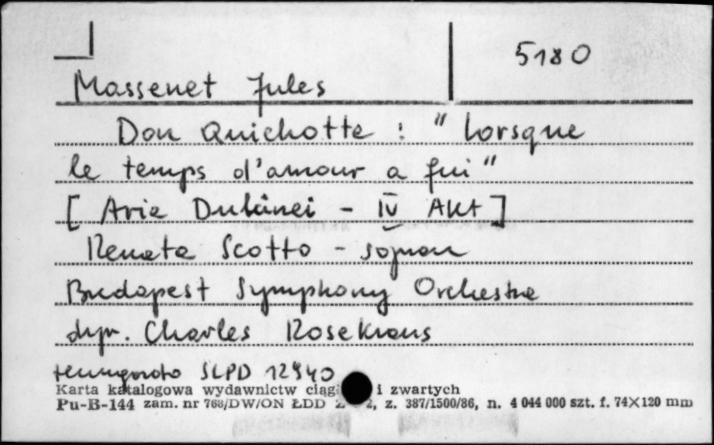 5180
Massenet Jules
Don Quichotte : "Lorsque
le temps d'amour a fui"
[Aria Dulcinei - IV Akt]
Renata Scotto - sopran
Budapest Symphony Orchestra
dyr. Charles Rosekrans
Hungaroton SLPD 12940
Karta katalogowa wydawnictw i zwartych
Pu-B-144 zam. nr 768/DW/ON ŁDD 2, z. 387/1500/86, n. 4 044 000 szt. f. 74×120 mm